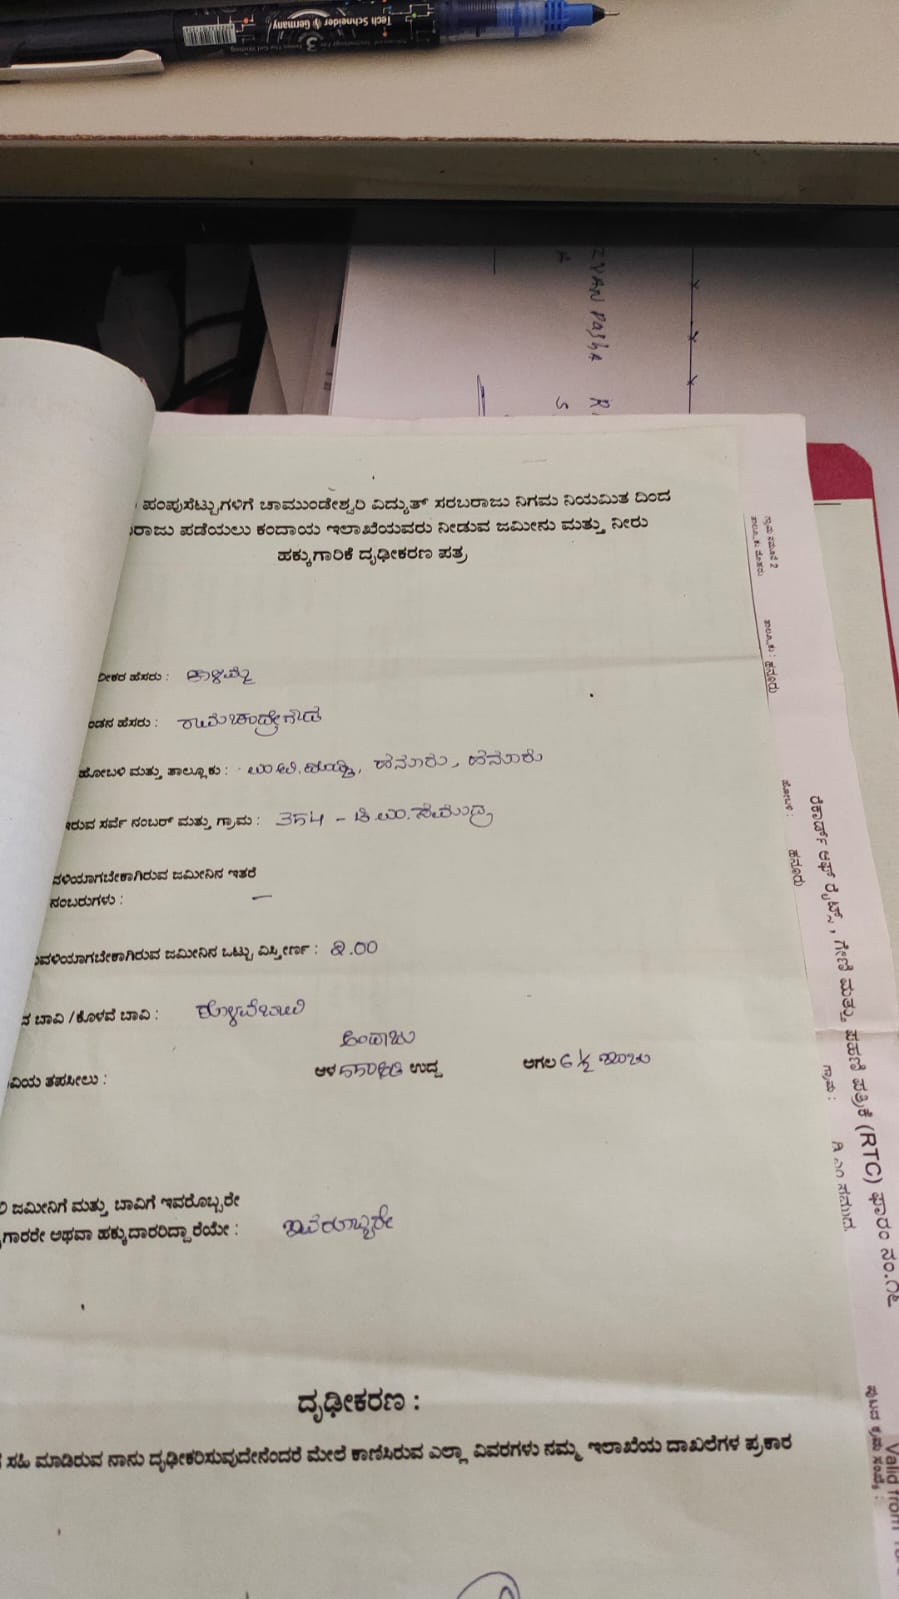 Tech Schneider Germany
3
IZVAN PashA
R.
S
ಪಂಪುಸೆಟ್ಟುಗಳಿಗೆ ಚಾಮುಂಡೇಶ್ವರಿ ವಿದ್ಯುತ್ ಸರಬರಾಜು ನಿಗಮ ನಿಯಮಿತ ದಿಂದ
ರಾಜು ಪಡೆಯಲು ಕಂದಾಯ ಇಲಾಖೆಯವರು ನೀಡುವ ಜಮೀನು ಮತ್ತು ನೀರು
ಹಕ್ಕುಗಾರಿಕೆ ದೃಢೀಕರಣ ಪತ್ರ
ಹೆಸರು : ಕಾಳಮ್ಮ
ಹೆಸರು : ರಾಮಚಂದ್ರೇಗೌಡ
ಹೋಬಳಿ ಮತ್ತು ತಾಲ್ಲೂಕು : ಹನೂರು, ಹನೂರು
ಇರುವ ಸರ್ವೆ ನಂಬರ್ ಮತ್ತು ಗ್ರಾಮ : 354 – ಡಿ.ಎಂ.ಸಮುದ್ರ
ವಳಿಯಾಗಬೇಕಾಗಿರುವ ಜಮೀನಿನ ಇತರೆ
ನಂಬರುಗಳು : –
ವಳಿಯಾಗಬೇಕಾಗಿರುವ ಜಮೀನಿನ ಒಟ್ಟು ವಿಸ್ತೀರ್ಣ : 2.00
ನ ಬಾವಿ / ಕೊಳವೆ ಬಾವಿ : ಕೊಳವೆಬಾವಿ
ಅಂದಾಜು
ವಿಯ ತಪಸೀಲು : ಆಳ 550ಅಡಿ ಉದ್ದ ಅಗಲ 6 ½ ಇಂಚು
ಜಮೀನಿಗೆ ಮತ್ತು ಬಾವಿಗೆ ಇವರೊಬ್ಬರೇ
ಗಾರರೇ ಅಥವಾ ಹಕ್ಕುದಾರರಿದ್ದಾರೆಯೇ : ಇವರೊಬ್ಬರೇ
ದೃಢೀಕರಣ :
ಸಹಿ ಮಾಡಿರುವ ನಾನು ದೃಢೀಕರಿಸುವುದೇನೆಂದರೆ ಮೇಲೆ ಕಾಣಿಸಿರುವ ಎಲ್ಲಾ ವಿವರಗಳು ನಮ್ಮ ಇಲಾಖೆಯ ದಾಖಲೆಗಳ ಪ್ರಕಾರ
ಗ್ರಾಮ ನಮೂನೆ 2
ತಾಲ್ಲೂಕು : ಹನೂರು
ಹೋಬಳಿ : ಹನೂರು
ರೆಕಾರ್ಡ್ ಆಫ್ ರೈಟ್ಸ್, ಗೇಣಿ ಮತ್ತು ಪಹಣಿ ಪತ್ರಿಕೆ (RTC) ಫಾರಂ ನಂ.೧೬
ಗ್ರಾಮ : ಡಿ ಎಂ ಸಮುದ್ರ
ಪುಟದ ಕ್ರಮ ಸಂಖ್ಯೆ :
Valid from